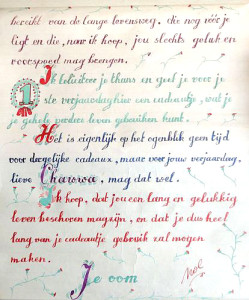 bereikt van de lange levensweg, die nog vóór je
ligt en die, naar ik hoop, jou slechts geluk en
voorspoed mag brengen.
Ik feliciteer je thans en geef je voor je
1ste verjaardag hier een cadeautje, wat je
je gehele verdere leven gebruiken kunt.
Het is eigenlijk op het ogenblik geen tijd
voor dergelijke cadeaux, maar voor jouw verjaardag,
lieve Chawwa, mag dat wel.
Ik hoop, dat jou een lang en gelukkig
leven beschoren mag zijn, en dat je dus heel
lang van je cadeautje gebruik zal mogen
maken.
Je oom